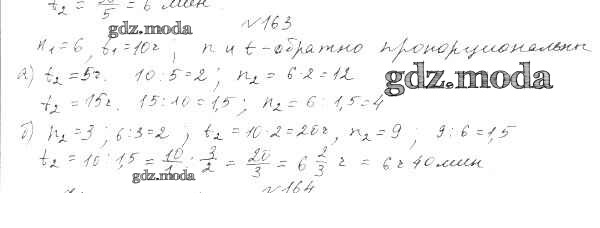 t₂ = 20/5 = 6 мин.
gdz.moda
№163
n₁=6, t₁=10ч, n и t - обратно пропорциональны
а) t₂=5ч. 10:5=2; n₂=6·2=12
gdz.moda
t₂=15ч. 15:10=1,5; n₂=6:1,5=4
б) n₂=3; 6:3=2; t₂=10·2=20ч, n₂=9; 9:6=1,5
t₂=10:1,5=10/1·3/2=20/3=6 2/3 ч=6ч 40мин
gdz.moda
№164